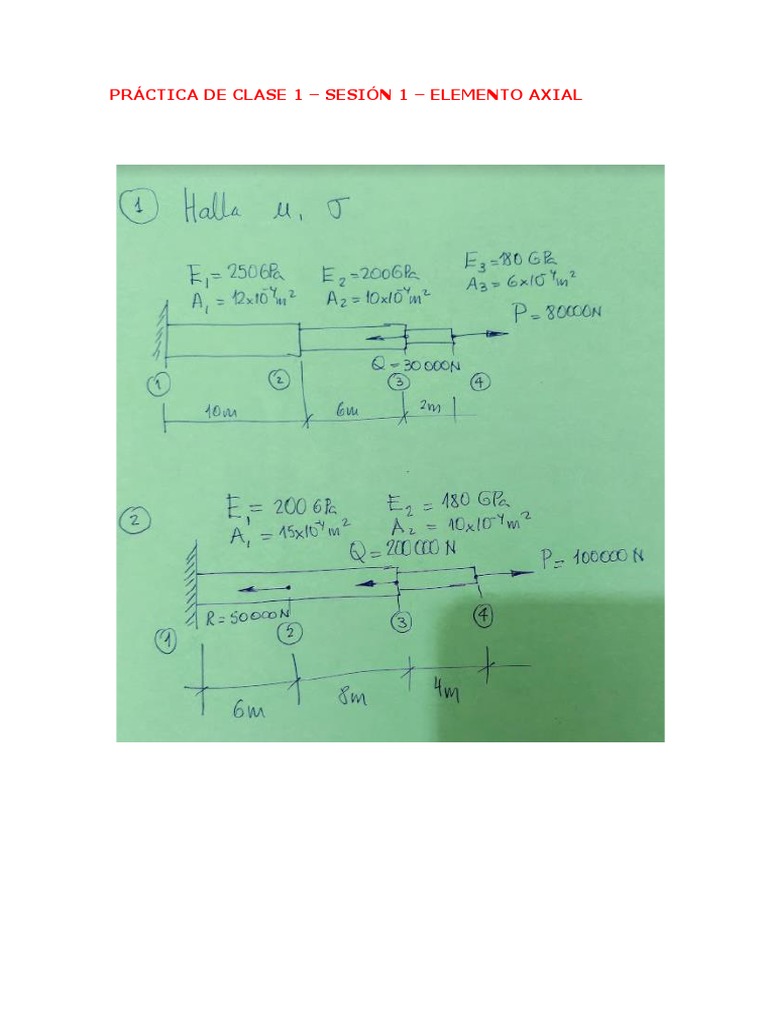 PRÁCTICA DE CLASE 1 – SESIÓN 1 – ELEMENTO AXIAL
① Halla u, σ
E₁ = 250GPa E₂ = 200GPa E₃ = 180 GPa
A₁ = 12x10⁻⁴m² A₂ = 10x10⁻⁴m² A₃ = 6x10⁻⁴m²
P = 80000N
Q = 30 000N
① ② ③ ④
10m 6m 2m
② E₁ = 200 GPa E₂ = 180 GPa
A₁ = 15x10⁻⁴m² A₂ = 10x10⁻⁴m²
Q = 200 000 N
P = 100000 N
R = 50000N
① ② ③ ④
6m 8m 4m